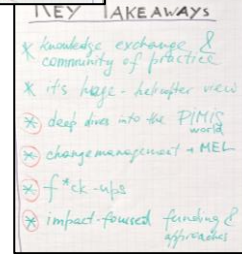 KEY TAKEAWAYS
* knowledge exchange &
community of practice
* it's huge - helicopter view
* deep dives into the PIMIS
world
* change management + MEL
* f*ck-ups
* impact-focused funding &
approaches